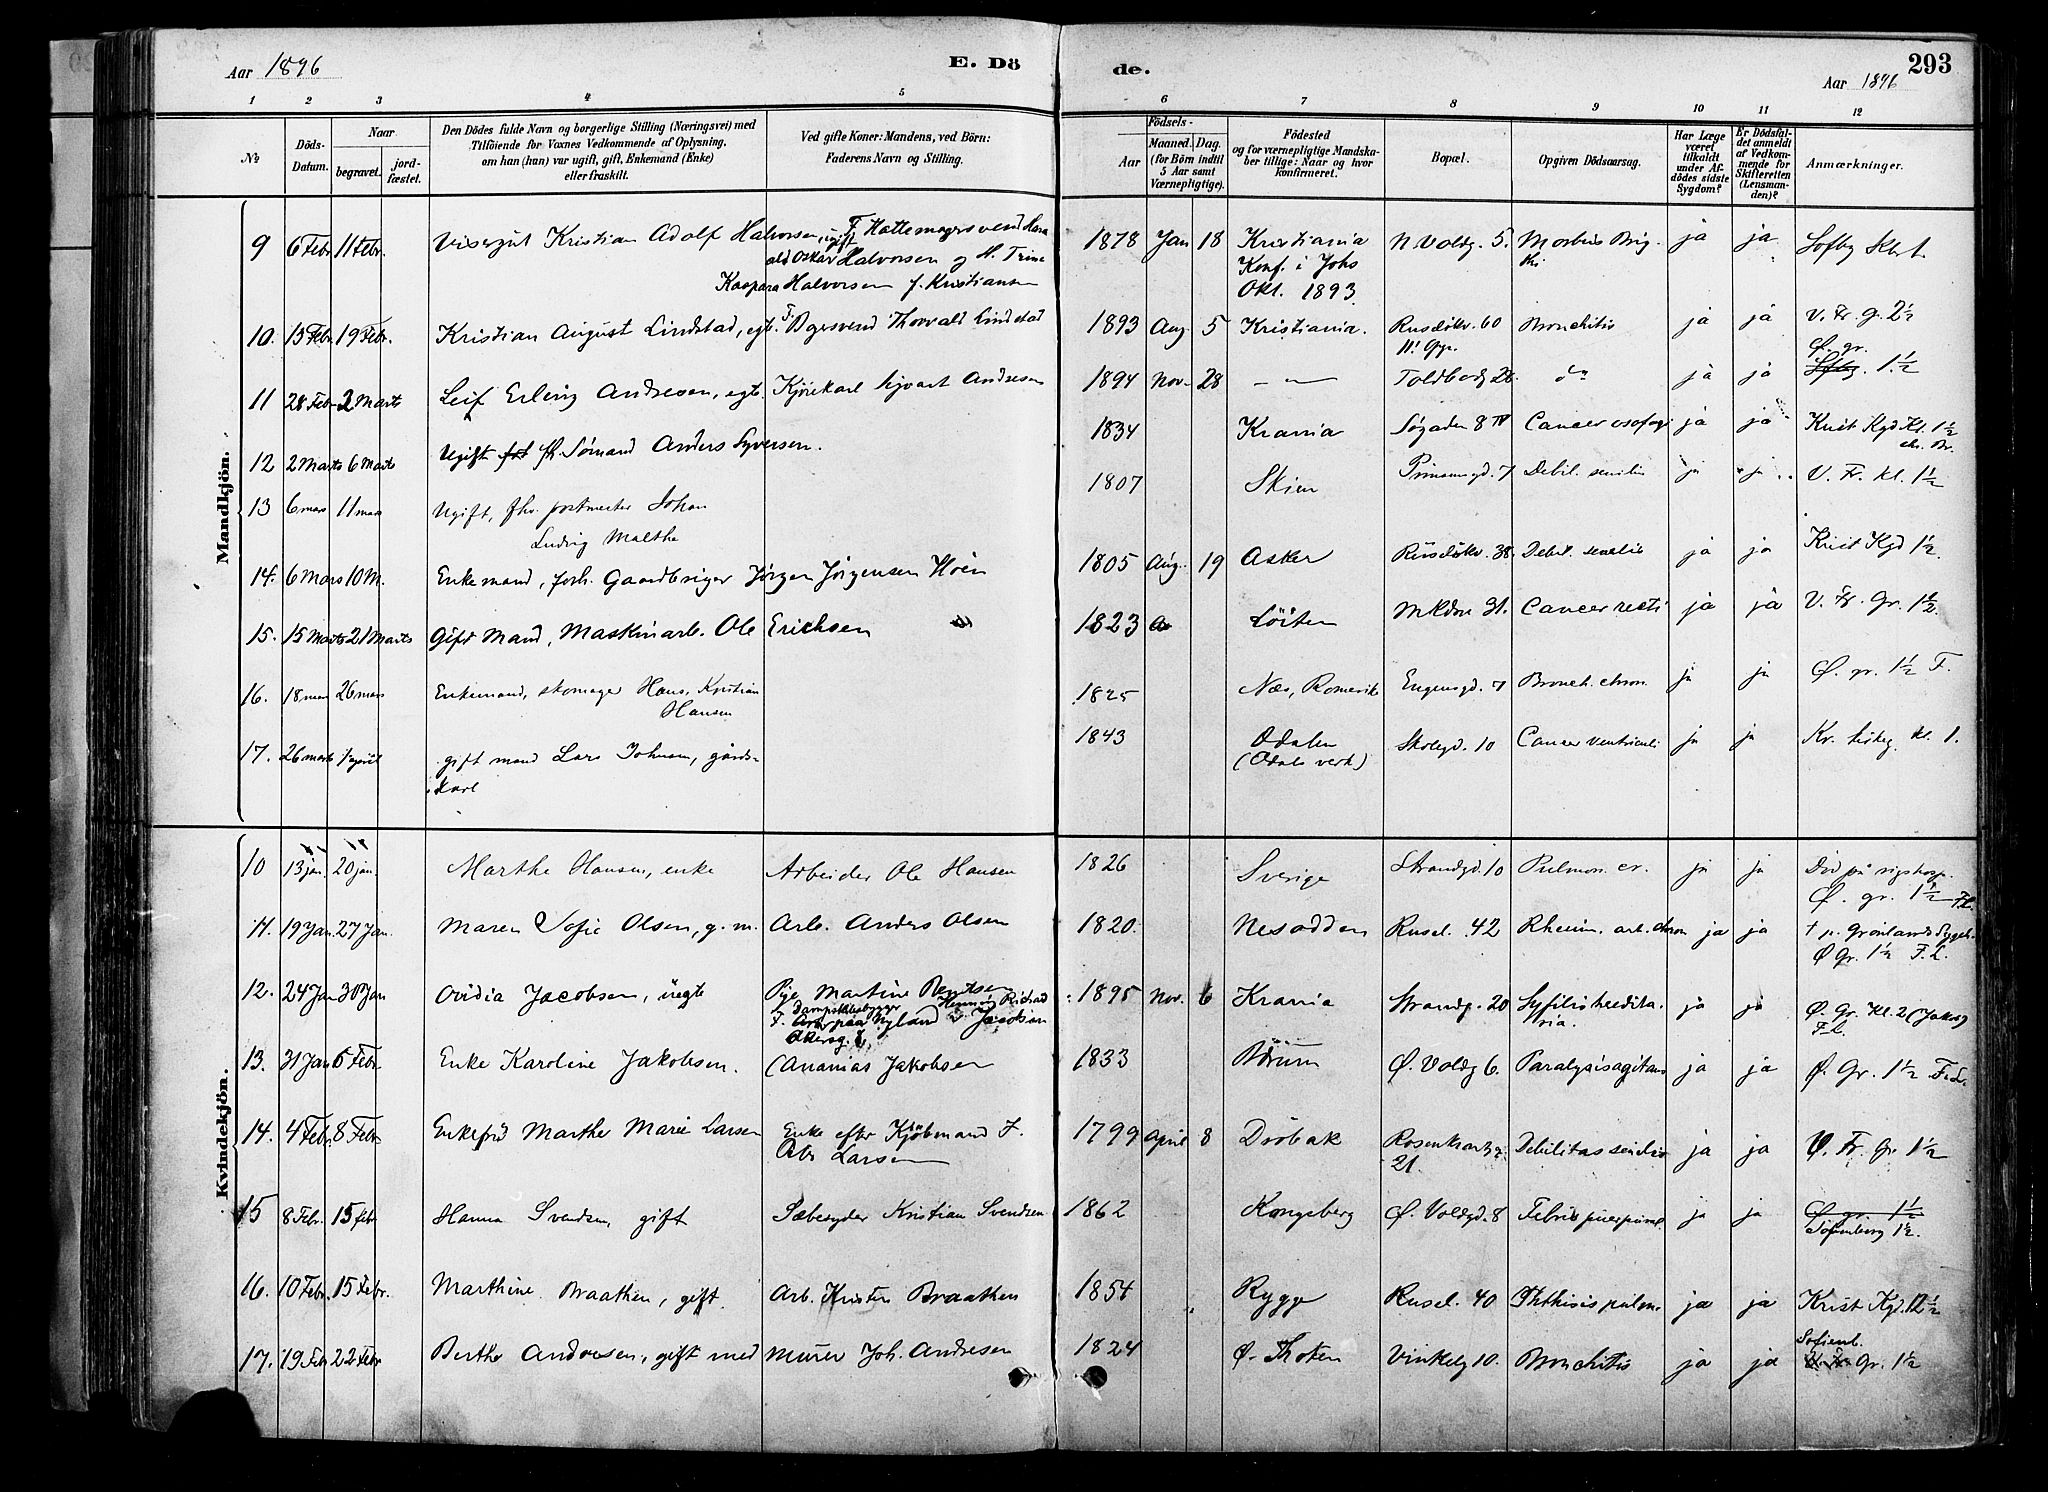 Aar 1896
E. Dö
de.
Aar 1896
293
1 2 3 4 5 6 7 8 9 10 11 12
№
Döds-Datum.
Naar
begravet.
jordfæstet.
Den Dödes fulde Navn og borgerlige Stilling (Næringsvei) med
Tilföiende for Voxnes Vedkommende af Oplysning,
om han (hun) var ugift, gift, Enkemand (Enke)
eller fraskilt.
Ved gifte Koner: Mandens, ved Börn:
Faderens Navn og Stilling.
Födsels-
Aar
Maaned. Dag.
(for Börn indtil
5 Aar samt
Værnepligtige).
Födested
og for værnepligtige Mandskaber tillige: Naar og hvor
konfirmeret.
Bopæl.
Opgiven Dödsaarsag.
Har Læge
været
tilkaldt
under Afdödes sidste
Sygdom?
Er Dödsfaldet anmeldt
af Vedkommende for
Skifteretten
(Lensmanden)?
Anmærkninger.
Mandkjön.
9 6 Febr 11 Febr. Visergut Kristian Adolf Halvorsen, ugift F. Hattemagersvend Harald Oskar Halvorsen og M. Trine Kaspara Halvorsen f. Kristiansen 1878 Jan 18 Kristiania Konf. i Johs Okt. 1893 N Voldg. 5. Morbus Brigthi ja ja
10. 13 Febr. 19 Febr. Kristian August Lindstad, egt. F. Bgersvend Thorvald Lindstad 1893 Aug 5 Kristiania. Rusdlökv. 60 Bronchitis ja ja V. Fr. g. 2½
11 28 Febr 2 Marts Leif Erling Andresen, egt. Kjörekarl Andresen 1894 Nov. 28 – " – Toldbodg 28. do ja ja Ø. gr. 1½
12 2 Marts 6 Marts Ugift fh. Sømand Anders Syversen. 1834 Krania Søgaden 8 IV Cancer osofagi ja ja Krist Kgd Kl. 1½
13 6 mars 11 mars Ugift, fhv. postmester Johan Ludvig Malthe 1807 Skien Prinsensgd. 7 Debil. senilis ja ja V. Fr. Kl. 1½
14. 6 Mars 10 M. Enkemand, forh. Gaardbruger Jørgen Jørgensen Høen 1805 Aug. 19 Asker Rusdlökv. 38. Debil. senilis ja ja Krist Kgd 1½
15. 15 Marts 21 Marts Gift Mand, Maskinarb. Ole Erichsen 1823 Löiten 31. Cancer recti ja ja V. Fr. Gr. 1½.
16. 18 mars 26 mars Enkemand, skomager Hans Kristian Hansen 1825 Næs, Romerike Engensgd. 7 Bronch. chron. ja ja Ø. gr. 1½ F.
17. 26 marts 1 april gift mand Lars Johnsen, gårdskarl 1843 Odalen (Odals verk) Skolegd. 10 Cancer ventriculi ja ja Kr. kirkeg. kl. 1.
Kvindekjön.
10 13 jan. 20 jan. Marthe Hansen, enke Arbeider Ole Hansen 1826 Sverige Strandgd. 10 Pulmon. cr. ja ja Död på rigshosp. Ø. gr. 1½ F.L.
11. 19 Jan. 27 Jan. Maren Sofie Olsen, g.m. Arb. Anders Olsen 1820. Nesodden Rusel. 42 Rheum. art. chron ja ja † p. Grönlands Sygeh. Ø Gr. 1½ F.L.
12. 24 Jan 30 Jan Ovidia Jacobsen, uegte Pige Martine Berntsen F. Dampskibsbygger Richard Jacobsen Akersg. 1895 Nov. 6 Krania Strandg. 20 Syfilis hereditaria. ja ja Ø. Gr. Kl. 2 (Jakob) F.L.
13. 31 Jan 6 Febr Enke Karoline Jakobsen. (Ananias Jakobsen 1833 Bärum Ø. Voldg 6. Paralysis agitans ja ja Ø. Gr. 1½ F.L.
14. 4 Febr. 8 Febr Enkefru Marthe Marie Larsen Enke efter Kjöbmand J. Larsen 1799 April 8 Dröbak Rosenkrantzg. 21. Debilitas senilis ja ja V. Fr. Gr. 1½
15 8 Febr. 15 febr Hanna Svendsen, gift Sæbesyder Kristian Svendsen 1862 Kongsberg Ø. Voldgd. 8 Febris puerperal. ja ja Ø gr. 1½ Sofienberg 1½.
16. 10 Febr. 15 Febr. Marthine Braathen, gift. Arb. Kristen Braathen 1854 Rygge Rusel. 40 Phthisis pulm. ja ja Krist Kgd. 12½
17. 19 Febr 22 Febr Berthe Andresen, gift med Murer Joh. Andresen 1824 Ø. Thoten Vinkelg 10. Bronchitis ja ja Sofienb. Gr. 1½